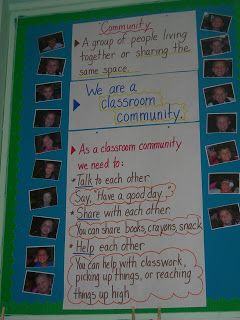 Community
A group of people living
together or sharing the
same space.
We are a
classroom
community.
As a classroom community
we need to:
* Talk to each other.
Say, "Have a good day."
* Share with each other.
You can share books, crayons, snack
* Help each other
You can help with classwork,
picking up things, or reaching
things up high.